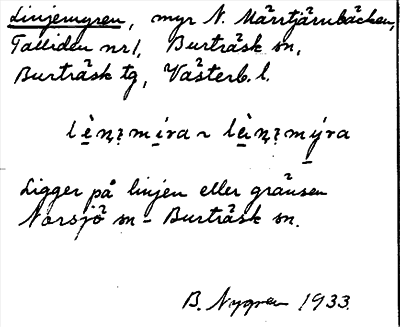 Linjemyren, myr N. Mårtjärnbäcken,
Talliden nr 1, Burträsk sn,
Burträsk tg, Västerb. l.
Ligger på linjen eller gränsen
Norsjö sn - Burträsk sn.
B. Nygren 1933.